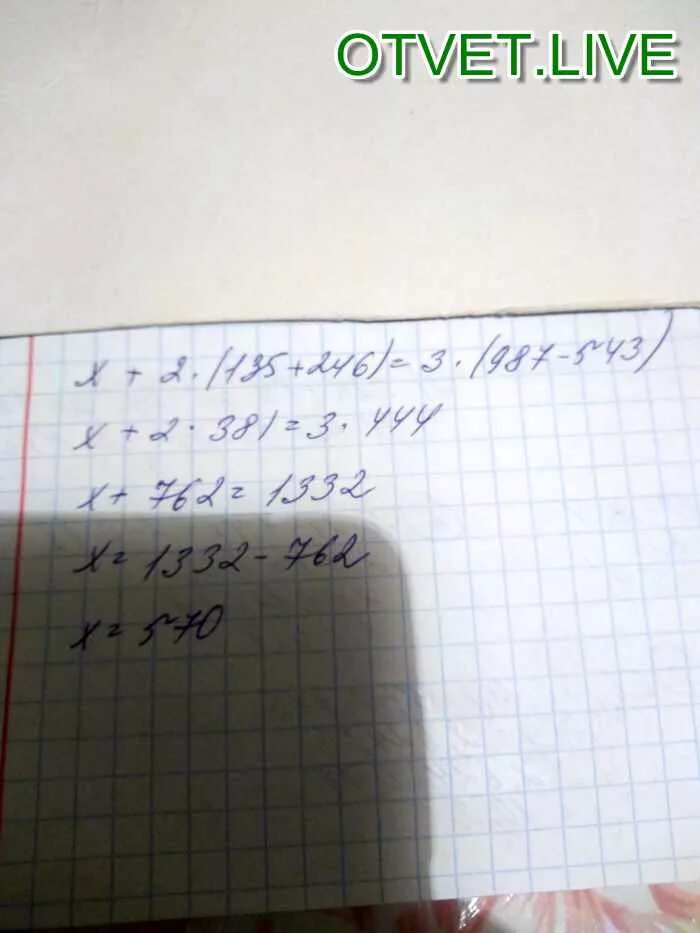 OTVET.LIVE
x + 2 · (135 + 246) = 3 · (987 - 543)
x + 2 · 381 = 3 · 444
x + 762 = 1332
x = 1332 - 762
x = 570